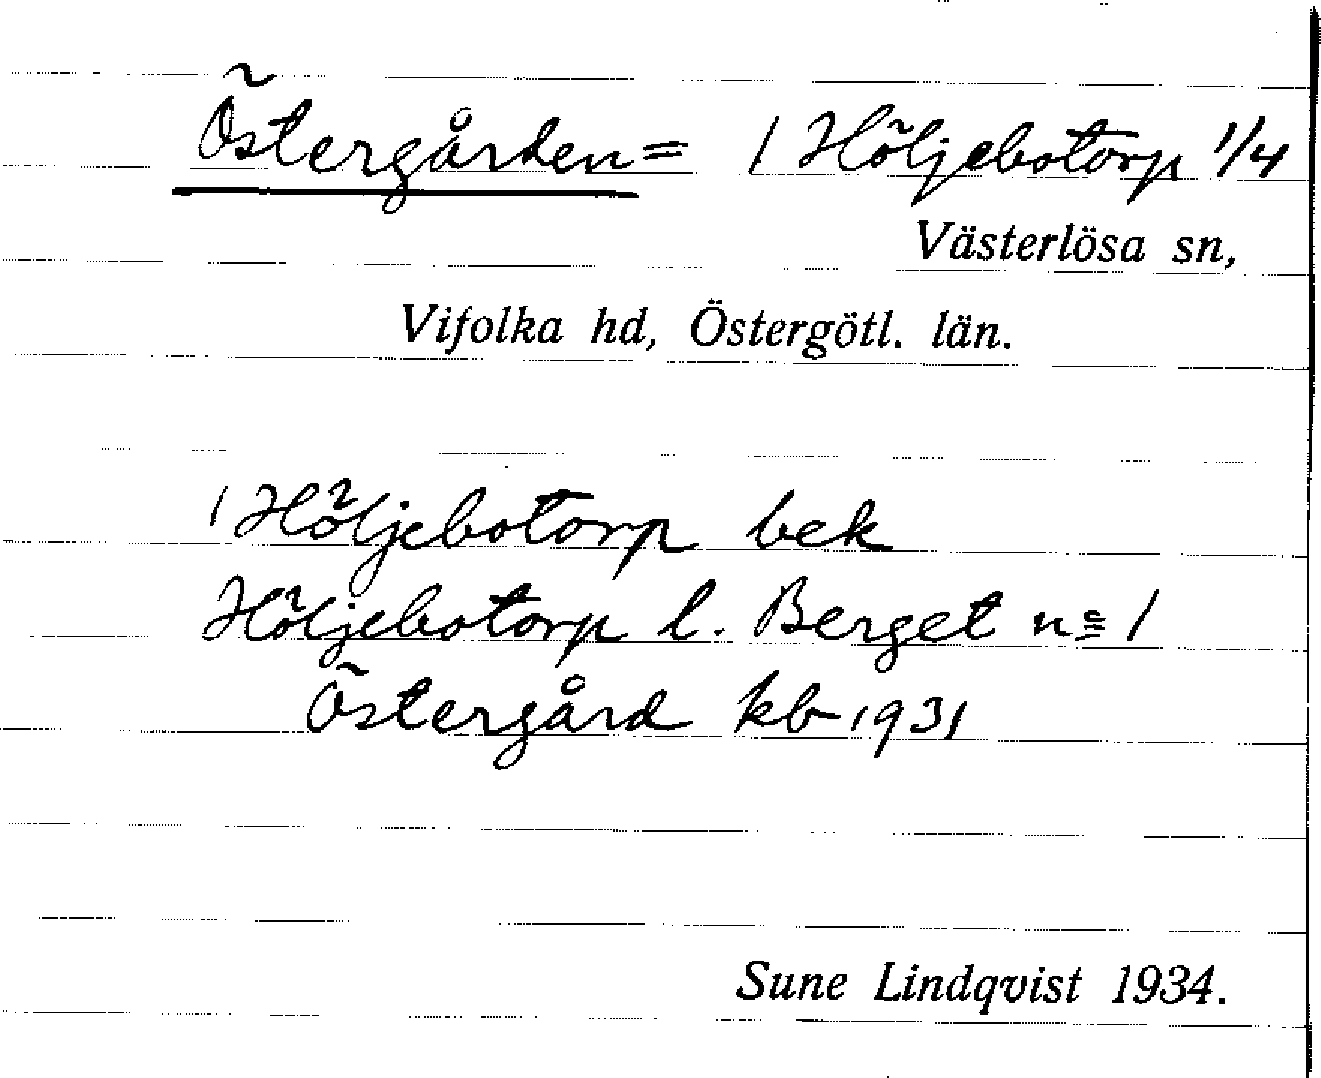 Östergården = 1 Höljebotorp 1/4
Västerlösa sn,
Vifolka hd, Östergötl. län.
1 Höljebotorp bek
Höljebotorp l. Berget no 1
Östergård kb 1931
Sune Lindqvist 1934.